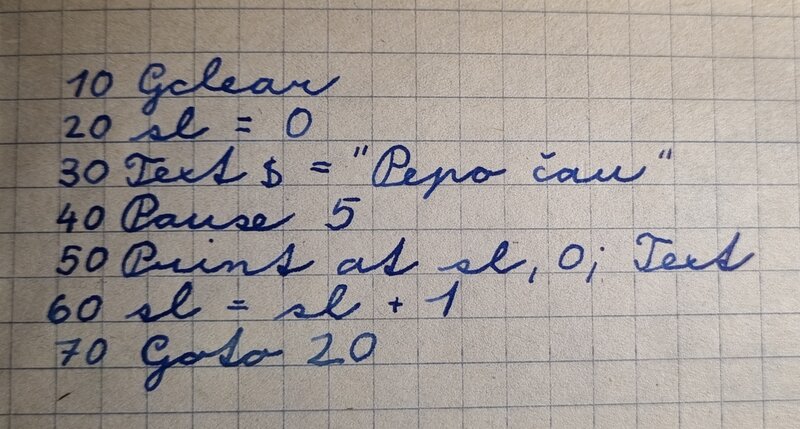 10 Gclear
20 sl = 0
30 Text $ = "Pepo čau"
40 Pause 5
50 Print at sl, 0; Text
60 sl = sl + 1
70 Goto 20